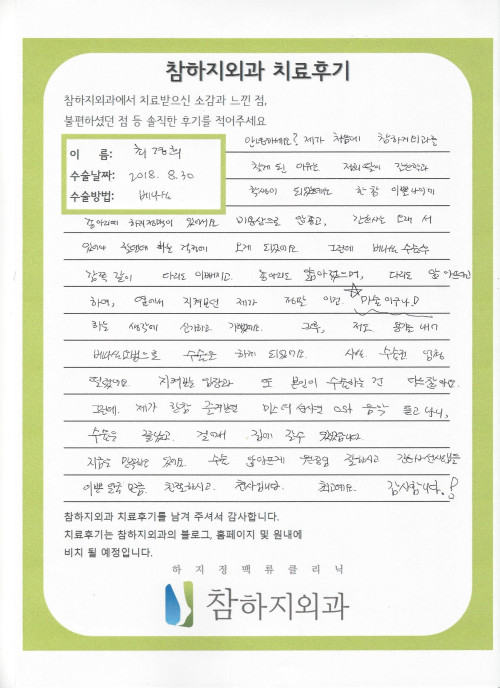 참하지외과 치료후기
참하지외과에서 치료받으신 소감과 느낀 점,
불편하셨던 점 등 솔직한 후기를 적어주세요
이 름: 최경희
수술날짜: 2018. 8. 30
수술방법: 베나실
안녕하세요? 제가 처음에 참하지외과를
찾게 된 이유는 저희 딸이 간호학과
학생이 되었는데요 한참 이쁜 나이에
종아리에 하지정맥이 있어서요 미용상으로 안좋고, 간호사는 오래 서
있어야 할텐데 하는 걱정에 오게 되었어요 그런데 베나실 수술후
감쪽 같이 다리도 이뻐지고. 종아리도 얇아졌으며, 다리도 안 아프다고
하며, 옆에서 지켜보던 제가 정말 이건. 마술이구나!
하는 생각에 신기하고 기뻤어요. 그후, 저도 용기를 내어
베나실방법으로 수술을 하게 되었어요. 사실 수술전 엄청
떨렸어요. 지켜보는 입장과 또 본인이 수술하는 건 다르잖아요.
그런데. 제가 한참 즐겨보던 미스터 션샤인 OST 음악 듣고 나니,
수술은 끝났고. 걸어서 집에 갈수 있었습니다.
지금도 만족하고 있어요. 수술 안아프게 잘하시고 간호사 선생님들
이쁜 얼굴 모습. 친절하시고. 천사입니다. 최고예요. 감사합니다.!
참하지외과 치료후기를 남겨 주셔서 감사합니다.
치료후기는 참하지외과의 블로그, 홈페이지 및 원내에
비치 될 예정입니다.
하지정맥류클리닉
참하지외과